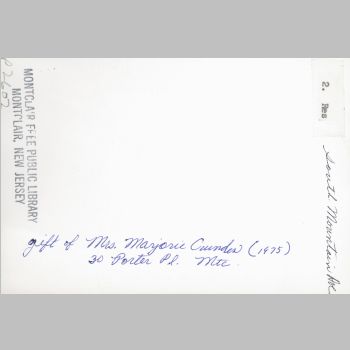 P2602
MONTCLAIR FREE PUBLIC LIBRARY
MONTCLAIR, NEW JERSEY
2. Res
South Mountain Ave
gift of Mrs. Marjorie Crunden (1975)
30 Porter Pl. Mtc.